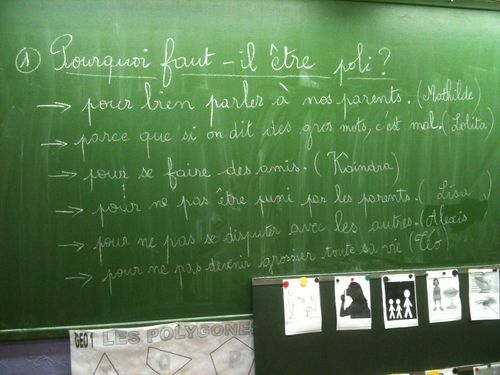 ① Pourquoi faut-il être poli ?
→ pour bien parler à nos parents. (Mathilde)
→ parce que si on dit des gros mots, c'est mal. (Lolita)
→ pour se faire des amis. (Kaindra)
→ pour ne pas être puni par les parents. (Lisa)
→ pour ne pas se disputer avec les autres. (Alexis
→ pour ne pas devenir grossier toute sa vie (Téo)
GEO 1 LES POLYGONE